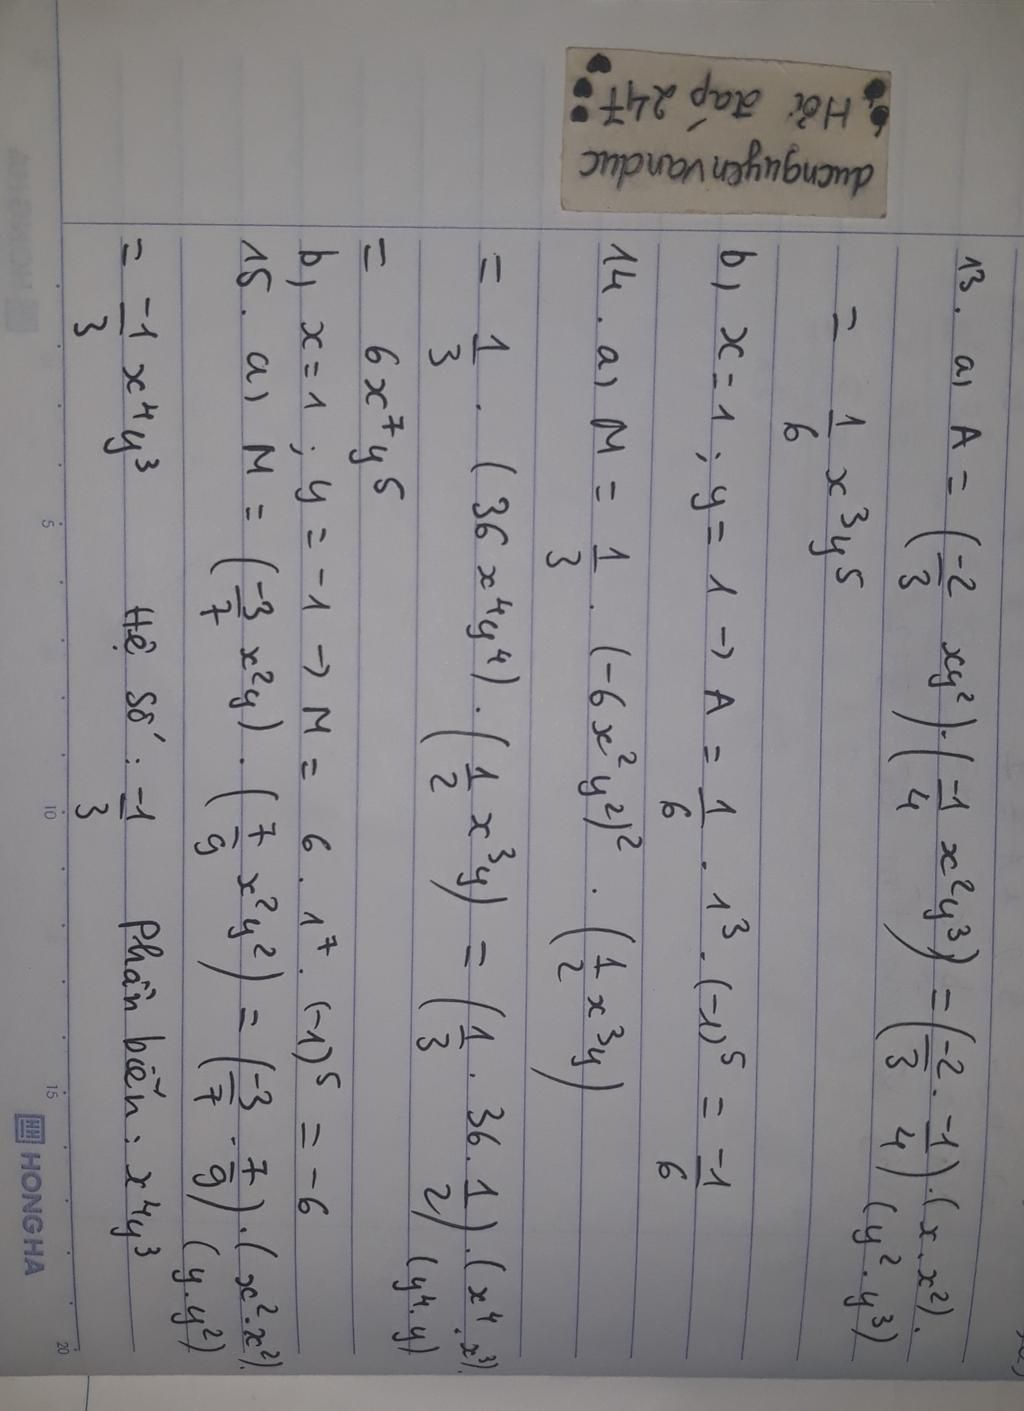 ducnguyenvanduc
Hỏi đáp 247
13. a) A = (-2/3 xy²).(-1/4 x²y³) = (-2/3 . -1/4).(x.x²).
(y².y³)
= 1/6 x³y⁵
b) x = 1 ; y = 1 → A = 1/6 . 1³ . (-1)⁵ = -1/6
14. a) M = 1/3 . (-6x²y²)² . (1/2 x³y)
= 1/3 . (36x⁴y⁴) . (1/2 x³y) = (1/3 . 36 . 1/2).(x⁴.x³).
(y⁴.y)
= 6x⁷y⁵
b) x = 1 ; y = -1 → M = 6 . 1⁷ . (-1)⁵ = -6
15. a) M = (-3/7 x²y) . (7/9 x²y²) = (-3/7 . 7/9).(x².x²).
(y.y²)
= -1/3 x⁴y³ Hệ số : -1/3 Phần biến : x⁴y³
5 10 15 20
HONGHA